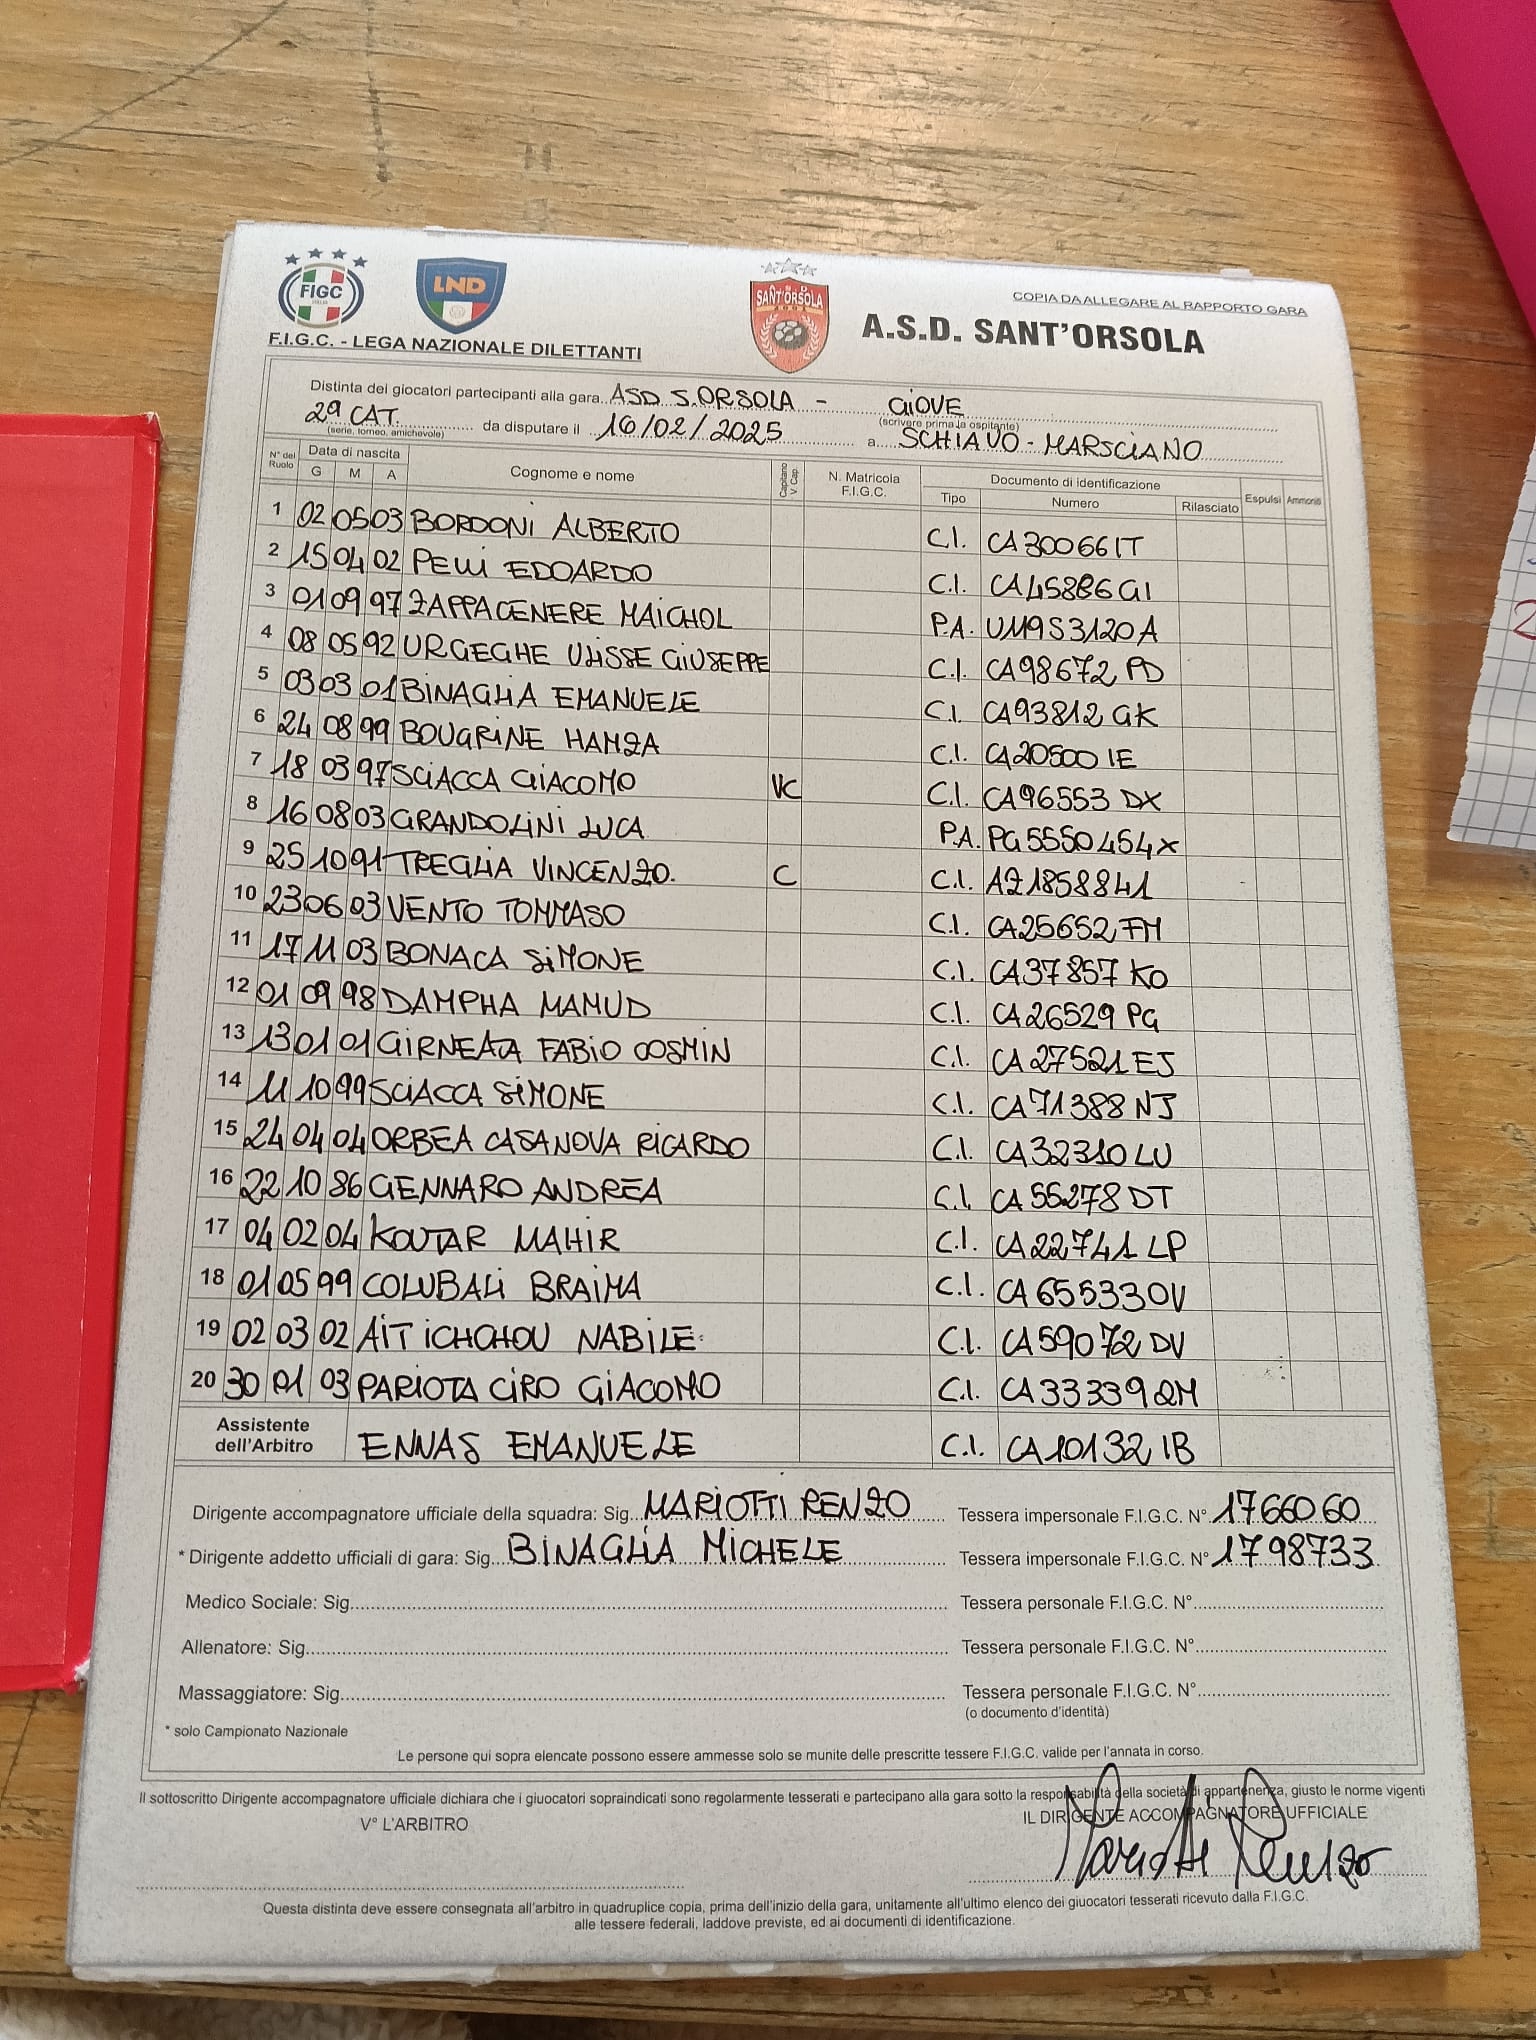 FIGC
LND
A.S.D. SANT'ORSOLA
COPIA DA ALLEGARE AL RAPPORTO GARA
F.I.G.C. - LEGA NAZIONALE DILETTANTI
A.S.D. SANT'ORSOLA
Distinta dei giocatori partecipanti alla gara ASD S.ORSOLA - GIOVE
(scrivere prima la ospitante)
2ª CAT. da disputare il 16/02/2025 a SCHIAVO - MARSCIANO
(serie, torneo, amichevole)
N° del Ruolo Data di nascita G M A Cognome e nome Capitano V. Cap. N. Matricola F.I.G.C. Documento di identificazione Tipo Numero Rilasciato Espulsi Ammoniti
1 02 05 03 BORDONI ALBERTO C.I. CA30066IT
2 15 04 02 PELLI EDOARDO C.I. CA45886GI
3 01 09 97 ZAPPACENERE MAICHOL P.A. U119S3120A
4 08 05 92 URGEGHE ULISSE GIUSEPPE C.I. CA98672PD
5 03 03 01 BINAGLIA EMANUELE C.I. CA93812GK
6 24 08 99 BOUGRINE HAMZA C.I. CA20500IE
7 18 03 97 SCIACCA GIACOMO VC C.I. CA96553DX
8 16 08 03 GRANDOLINI LUCA P.A. PG5550454X
9 25 10 91 TREGLIA VINCENZO. C C.I. AZ1858841
10 23 06 03 VENTO TOMMASO C.I. CA25652FM
11 17 11 03 BONACA SIMONE C.I. CA37857KO
12 01 09 98 DAMPHA MAMUD C.I. CA26529PG
13 13 01 01 GIRNEATA FABIO COSMIN C.I. CA27521EJ
14 11 10 99 SCIACCA SIMONE C.I. CA71388NJ
15 24 04 04 ORBEA CASANOVA RICARDO C.I. CA32310LU
16 22 10 86 GENNARO ANDREA C.I. CA55278DT
17 04 02 04 KOUTAR MAHIR C.I. CA22741LP
18 01 05 99 COLUBALI BRAIMA C.I. CA65533OV
19 02 03 02 AIT ICHCHOU NABILE C.I. CA59072DV
20 30 01 03 PARIOTA CIRO GIACOMO C.I. CA33339QM
Assistente dell'Arbitro ENNAS EMANUELE C.I. CA10132IB
Dirigente accompagnatore ufficiale della squadra: Sig. MARIOTTI RENZO Tessera impersonale F.I.G.C. N° 1766060
* Dirigente addetto ufficiali di gara: Sig. BINAGLIA MICHELE Tessera impersonale F.I.G.C. N° 1798733
Medico Sociale: Sig. Tessera personale F.I.G.C. N°
Allenatore: Sig. Tessera personale F.I.G.C. N°
Massaggiatore: Sig. Tessera personale F.I.G.C. N°
(o documento d'identità)
* solo Campionato Nazionale
Le persone qui sopra elencate possono essere ammesse solo se munite delle prescritte tessere F.I.G.C. valide per l'annata in corso.
Il sottoscritto Dirigente accompagnatore ufficiale dichiara che i giuocatori sopraindicati sono regolarmente tesserati e partecipano alla gara sotto la responsabilità della società di appartenenza, giusto le norme vigenti
V° L'ARBITRO IL DIRIGENTE ACCOMPAGNATORE UFFICIALE
Mariotti Renzo
Questa distinta deve essere consegnata all'arbitro in quadruplice copia, prima dell'inizio della gara, unitamente all'ultimo elenco dei giuocatori tesserati ricevuto dalla F.I.G.C.
alle tessere federali, laddove previste, ed ai documenti di identificazione.